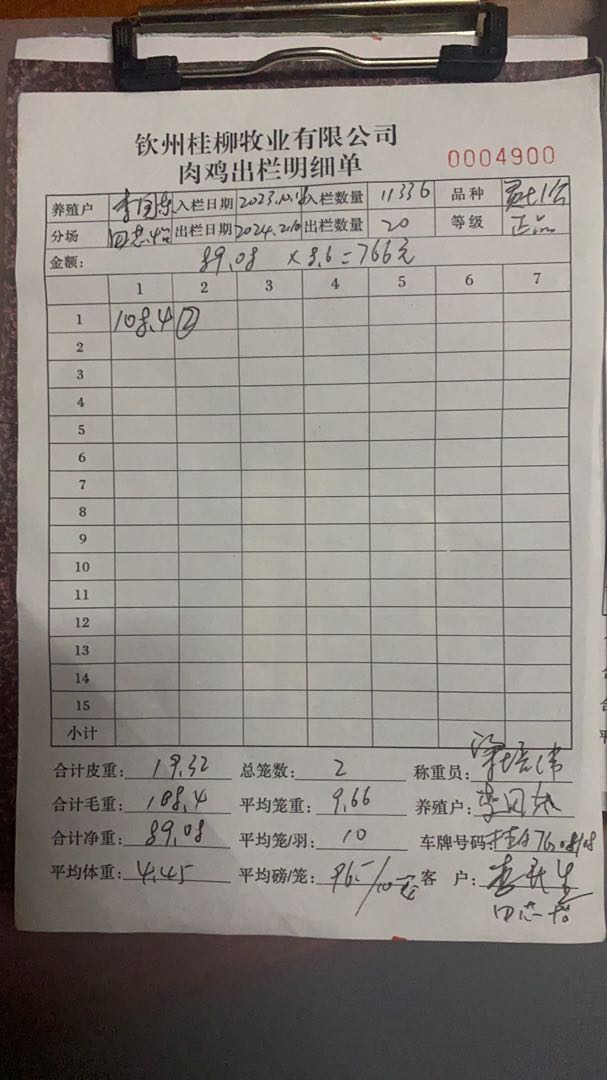 钦州桂柳牧业有限公司
肉鸡出栏明细单
0004900
养殖户 入栏日期 2023.10. 入栏数量 11336 品种
分场 出栏日期 2024.2.10 出栏数量 20 等级 正品
金额: 89.08 × 8.6 = 766元
1 2 3 4 5 6 7
1 108.4 ②
2
3
4
5
6
7
8
9
10
11
12
13
14
15
小计
合计皮重: 19.32 总笼数: 2 称重员:
合计毛重: 108.4 平均笼重: 9.66 养殖户:
合计净重: 89.08 平均笼/羽: 10 车牌号码:
平均体重: 4.45 平均磅/笼: 客户: